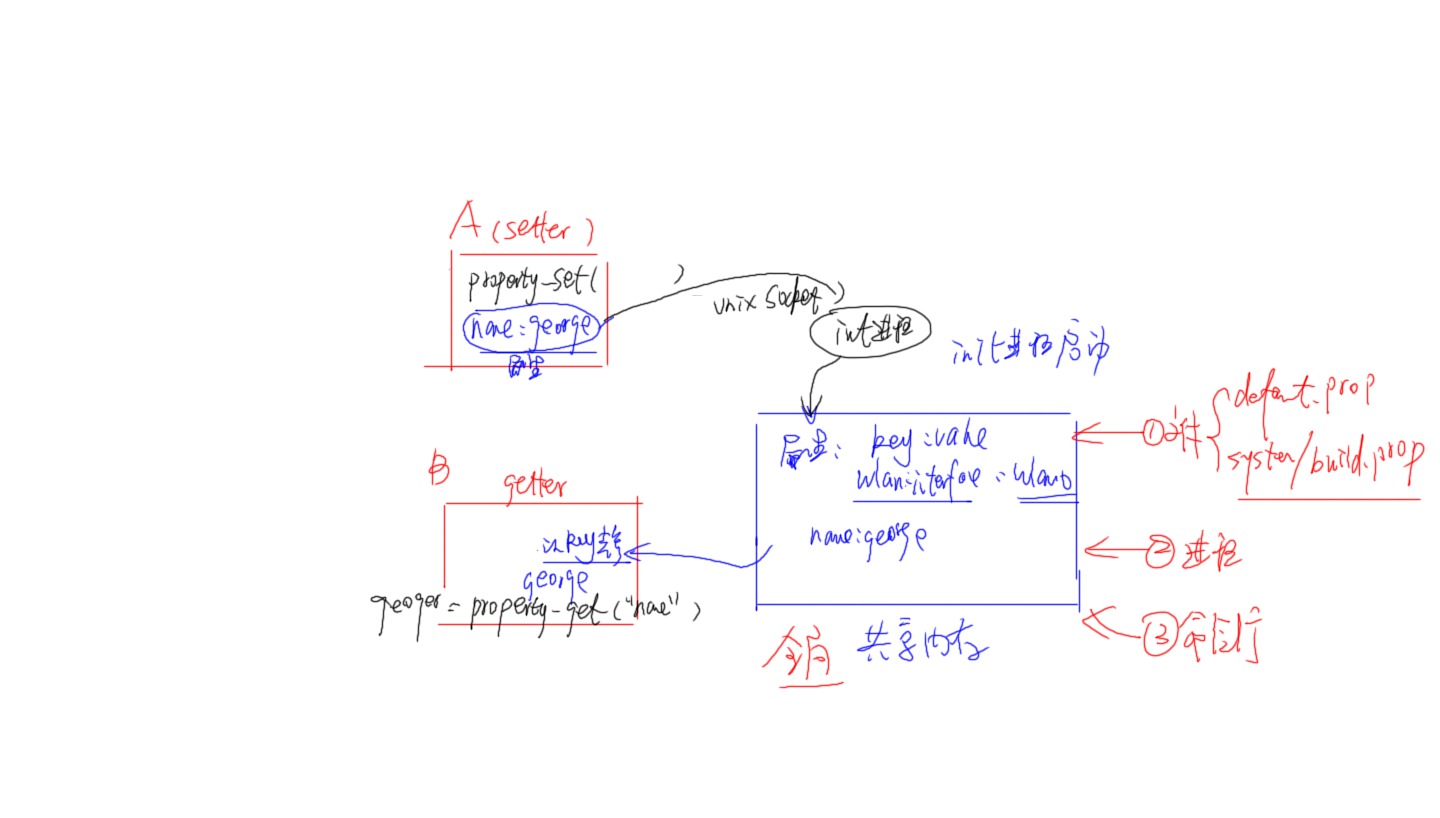 A (setter)
property_set(
)
name:george
属性
unix socket )
init进程
init进程启动
属性: key:value
wlan.iterface : wlan0
name:george
全局 共享内存
①文件
default.prop
system/build.prop
②进程
③命令行
B getter
george
geoger = property_get("name")